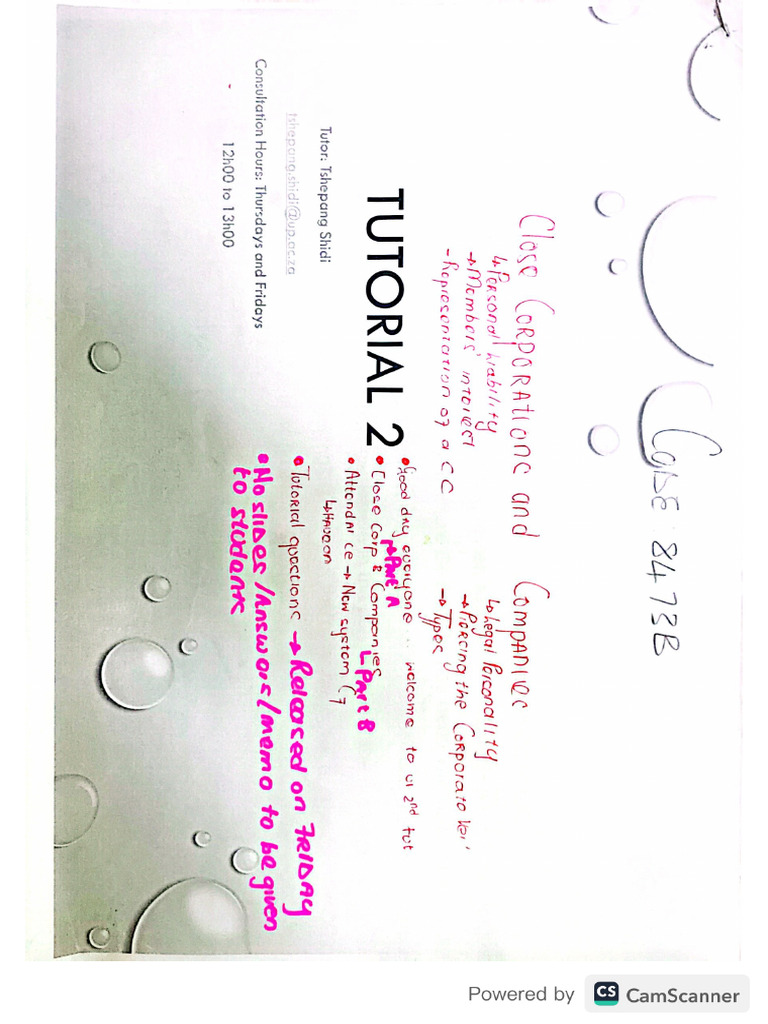 CODE 8473B
Close CORPORATIONS and
↳ Personal liability
→ Members' interest
- Representation of a CC
COMPANIES
↳ Legal Personality
→ Piercing the Corporate Veil
→ Types
TUTORIAL 2
Tutor: Tshepang Shidi
tshepang.shidi@up.ac.za
Consultation Hours: Thursdays and Fridays
12h00 to 13h00
• Good day everyone .. welcome to 2nd tut
• Close Corp & Companies
↳ Part A
↳ Part B
• Attendance → New system
• Tutorial questions → Released on FRIDAY
• No slides/Answers/memo to be given
to students
Powered by CS CamScanner